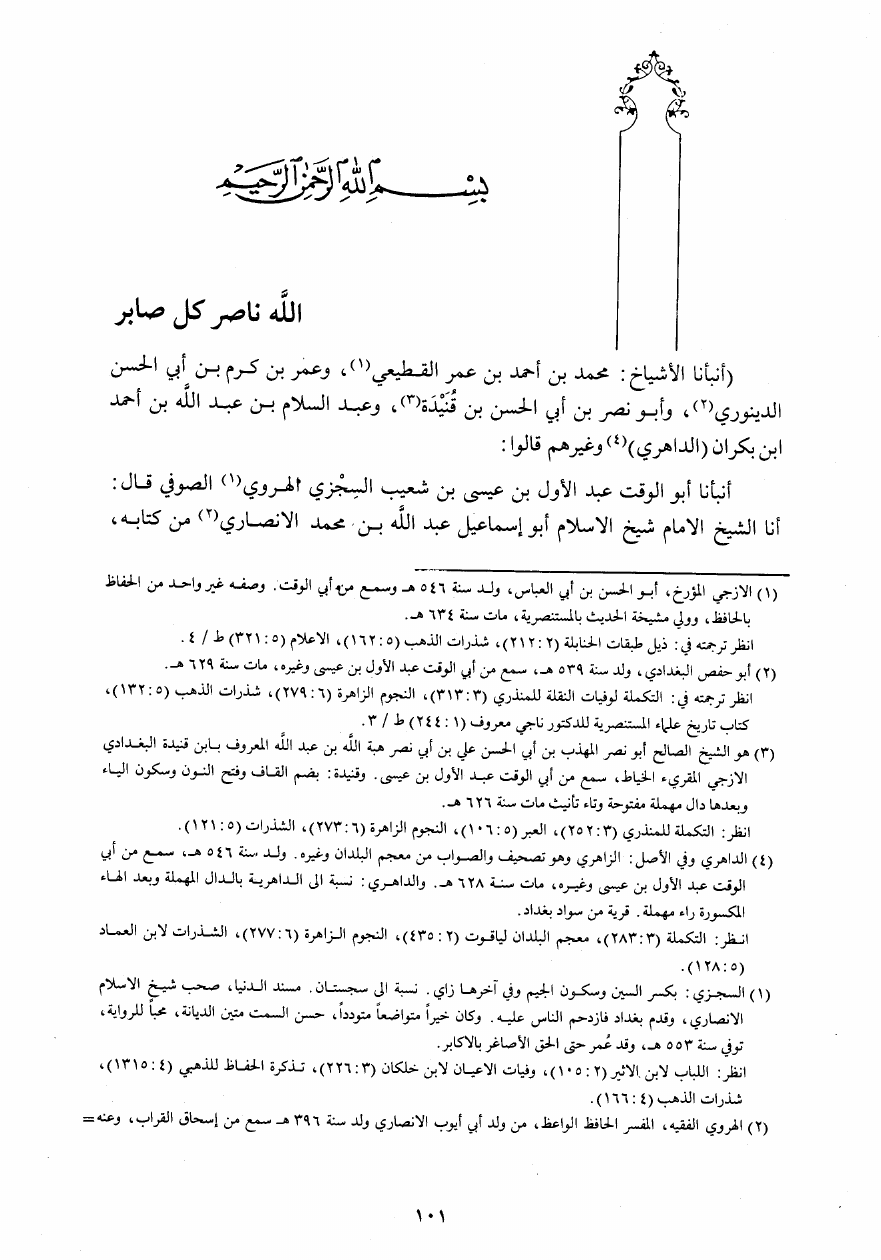 بسم الله الرحمن الرحيم
اللَّه ناصر كل صابر
(أنبأنا الأشياخ: محمد بن أحمد بن عمر القطيعي(١)، وعمر بن كرم بن أبي الحسن
الدينوري(٢)، وأبو نصر بن أبي الحسن بن قُنَيْدَة(٣)، وعبد السلام بن عبد اللَّه بن أحمد
ابن بكران (الداهري)(٤) وغيرهم قالوا:
أنبأنا أبو الوقت عبد الأول بن عيسى بن شعيب السِجْزي الهروي(١) الصوفي قال:
أنا الشيخ الامام شيخ الاسلام أبو إسماعيل عبد اللَّه بن محمد الانصاري(٢) من كتابه،
(١) الازجي المؤرخ، أبو الحسن بن أبي العباس، ولد سنة ٥٤٦ هـ وسمع من أبي الوقت. وصفه غير واحد من الحفاظ
بالحافظ، وولي مشيخة الحديث بالمستنصرية، مات سنة ٦٣٤ هـ.
انظر ترجمته في: ذيل طبقات الحنابلة (٢: ٢١٢)، شذرات الذهب (٥: ١٦٢)، الاعلام (٥: ٣٢١) ط / ٤.
(٢) أبو حفص البغدادي، ولد سنة ٥٣٩ هـ، سمع من أبي الوقت عبد الأول بن عيسى وغيره، مات سنة ٦٢٩ هـ.
انظر ترجمته في: التكملة لوفيات النقلة للمنذري (٣: ٣١٣)، النجوم الزاهرة (٦: ٢٧٩)، شذرات الذهب (٥: ١٣٢)،
كتاب تاريخ علماء المستنصرية للدكتور ناجي معروف (١: ٢٤٤) ط / ٣.
(٣) هو الشيخ الصالح أبو نصر المهذب بن أبي الحسن علي بن أبي نصر هبة اللَّه بن عبد اللَّه المعروف بابن قنيدة البغدادي
الازجي المقريء الخياط، سمع من أبي الوقت عبد الأول بن عيسى. وقنيدة: بضم القاف وفتح النون وسكون الياء
وبعدها دال مهملة مفتوحة وتاء تأنيث مات سنة ٦٢٦ هـ.
انظر: التكملة للمنذري (٣: ٢٥٢)، العبر (٥: ١٠٦)، النجوم الزاهرة (٦: ٢٧٣)، الشذرات (٥: ١٢١).
(٤) الداهري وفي الأصل: الزاهري وهو تصحيف والصواب من معجم البلدان وغيره. ولد سنة ٥٤٦ هـ، سمع من أبي
الوقت عبد الأول بن عيسى وغيره، مات سنة ٦٢٨ هـ. والداهري: نسبة الى الداهرية بالدال المهملة وبعد الهاء
المكسورة راء مهملة. قرية من سواد بغداد.
انظر: التكملة (٣: ٢٨٣)، معجم البلدان لياقوت (٢: ٤٣٥)، النجوم الزاهرة (٦: ٢٧٧)، الشذرات لابن العماد
(٥: ١٢٨).
(١) السجزي: بكسر السين وسكون الجيم وفي آخرها زاي. نسبة الى سجستان. مسند الدنيا، صحب شيخ الاسلام
الانصاري، وقدم بغداد فازدحم الناس عليه. وكان خيراً متواضعاً متودداً، حسن السمت متين الديانة، محباً للرواية،
توفي سنة ٥٥٣ هـ، وقد عُمر حتى الحق الأصاغر بالاكابر.
انظر: اللباب لابن الاثير (٢: ١٠٥)، وفيات الاعيان لابن خلكان (٣: ٢٢٦)، تذكرة الحفاظ للذهبي (٤: ١٣١٥)،
شذرات الذهب (٤: ١٦٦).
(٢) الهروي الفقيه، المفسر الحافظ الواعظ، من ولد أبي أيوب الانصاري ولد سنة ٣٩٦ هـ سمع من إسحاق القراب، وعنه=
١٠١